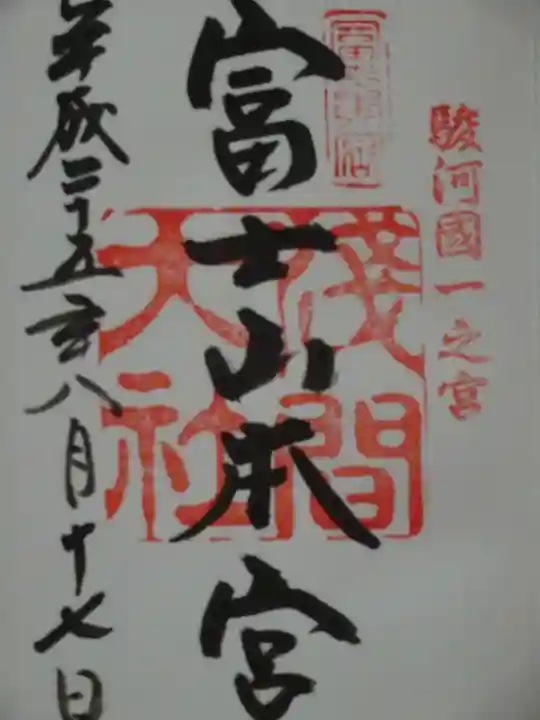 駿河國一之宮
富士山本宮
淺間大社
平成二十五年八月十七日